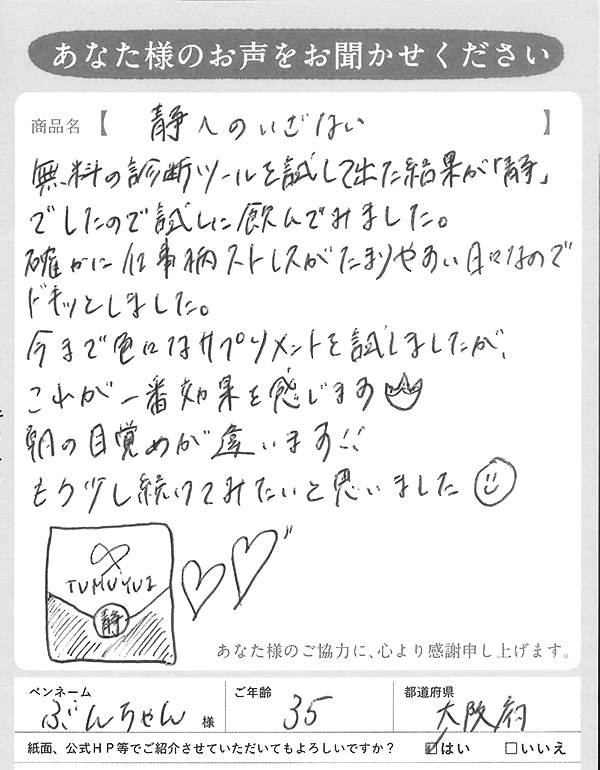 あなた様のお声をお聞かせください
商品名【 静へのいざない 】
無料の診断ツールを試して出た結果が「静」
でしたので試しに飲んでみました。
確かに仕事柄ストレスがたまりやすい日々なので
ドキッとしました。
今まで色々なサプリメントを試しましたが、
これが一番効果を感じます
朝の目覚めが違います!!
もう少し続けてみたいと思いました
TUMUYUI
静
あなた様のご協力に、心より感謝申し上げます。
ペンネーム ぶんちゃん 様 ご年齢 35 都道府県 大阪府
紙面、公式HP等でご紹介させていただいてもよろしいですか? ☑はい □いいえ